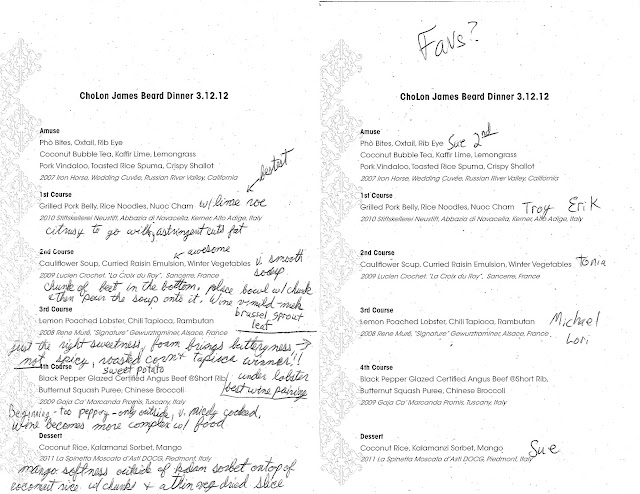 ChoLon James Beard Dinner 3.12.12
Amuse
Phö Bites, Oxtail, Rib Eye
Coconut Bubble Tea, Kaffir Lime, Lemongrass
Pork Vindaloo, Toasted Rice Spuma, Crispy Shallot
2007 Iron Horse, Wedding Cuvée, Russian River Valley, California
bestest
1st Course
Grilled Pork Belly, Rice Noodles, Nuoc Cham w/ lime roe
2010 Stiftskellerei Neustift, Abbazia di Novacella, Kerner, Alto Adige, Italy
citrusy to go with, astringent cuts fat
awesome
2nd Course
Cauliflower Soup, Curried Raisin Emulsion, Winter Vegetables v. smooth
2009 Lucien Crochet, "La Croix du Roy", Sancerre, France soup
chunk of beet in the bottom, place bowl w/ chunk
& then pour the soup onto it. Wine v mild
brussel sprout
leaf
3rd Course
Lemon Poached Lobster, Chili Tapioca, Rambutan
2008 Rene Muré, "Signature" Gewurztraminer, Alsace, France
just the right sweetness, foam brings butteryness →
not spicy, roasted corn & tapioca winner!!
sweet potato
4th Course
Black Pepper Glazed Certified Angus Beef ®Short Rib, under lobster
Butternut Squash Puree, Chinese Broccoli best wine pairing
2009 Gaja Ca' Marcanda Promis, Tuscany, Italy
Beginning - too peppery - only outside, v. nicely cooked,
Wine becomes more complex w/ food
Dessert
Coconut Rice, Kalamanzi Sorbet, Mango
2011 La Spinetta Moscato d'Asti DOCG, Piedmont, Italy
mango softness outside of sorbet on top of
coconut rice w/ chunks & a thin dried slice
Favs?
ChoLon James Beard Dinner 3.12.12
Amuse
Phö Bites, Oxtail, Rib Eye Sue 2nd
Coconut Bubble Tea, Kaffir Lime, Lemongrass
Pork Vindaloo, Toasted Rice Spuma, Crispy Shallot
2007 Iron Horse, Wedding Cuvée, Russian River Valley, California
1st Course
Grilled Pork Belly, Rice Noodles, Nuoc Cham Troy Erik
2010 Stiftskellerei Neustift, Abbazia di Novacella, Kerner, Alto Adige, Italy
2nd Course
Cauliflower Soup, Curried Raisin Emulsion, Winter Vegetables Tonia
2009 Lucien Crochet, "La Croix du Roy", Sancerre, France
3rd Course
Lemon Poached Lobster, Chili Tapioca, Rambutan Michael
2008 Rene Muré, "Signature" Gewurztraminer, Alsace, France Lori
4th Course
Black Pepper Glazed Certified Angus Beef ®Short Rib,
Butternut Squash Puree, Chinese Broccoli
2009 Gaja Ca' Marcanda Promis, Tuscany, Italy
Dessert
Coconut Rice, Kalamanzi Sorbet, Mango
2011 La Spinetta Moscato d'Asti DOCG, Piedmont, Italy Sue